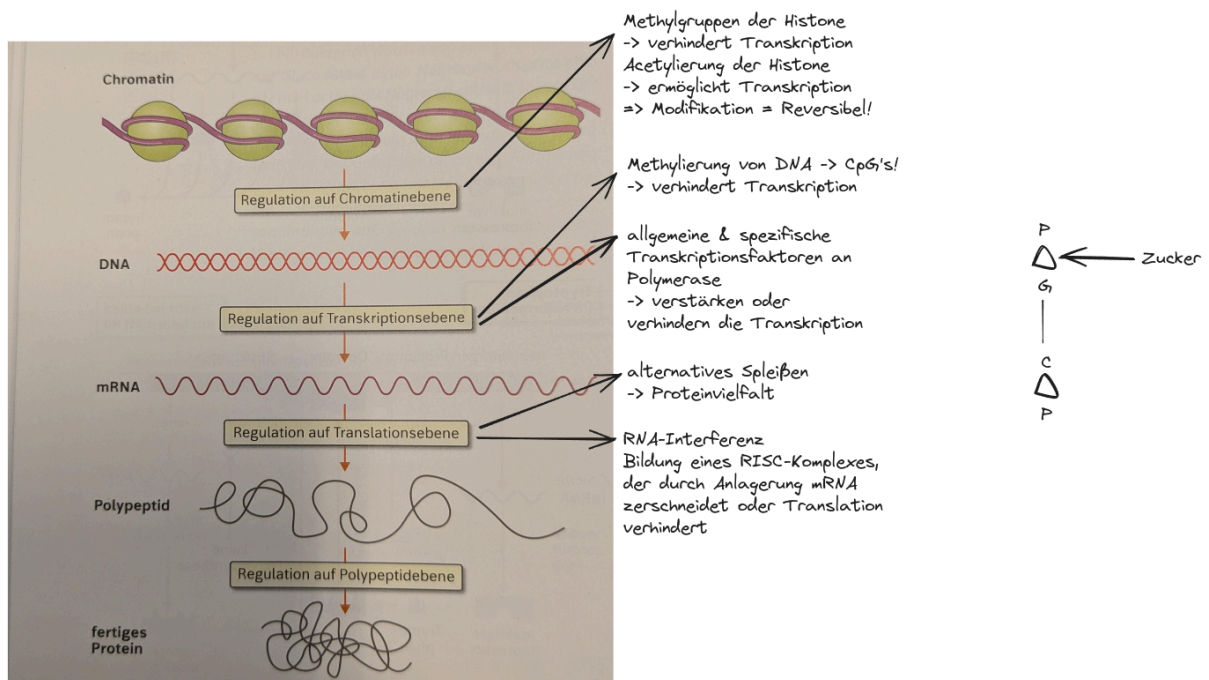 Chromatin
Regulation auf Chromatinebene
DNA
Regulation auf Transkriptionsebene
mRNA
Regulation auf Translationsebene
Polypeptid
Regulation auf Polypeptidebene
fertiges
Protein
Methylgruppen der Histone
-> verhindert Transkription
Acetylierung der Histone
-> ermöglicht Transkription
=> Modifikation = Reversibel!
Methylierung von DNA -> CpG's!
-> verhindert Transkription
allgemeine & spezifische
Transkriptionsfaktoren an
Polymerase
-> verstärken oder
verhindern die Transkription
alternatives Spleißen
-> Proteinvielfalt
RNA-Interferenz
Bildung eines RISC-Komplexes,
der durch Anlagerung mRNA
zerschneidet oder Translation
verhindert
P
Zucker
G
C
P